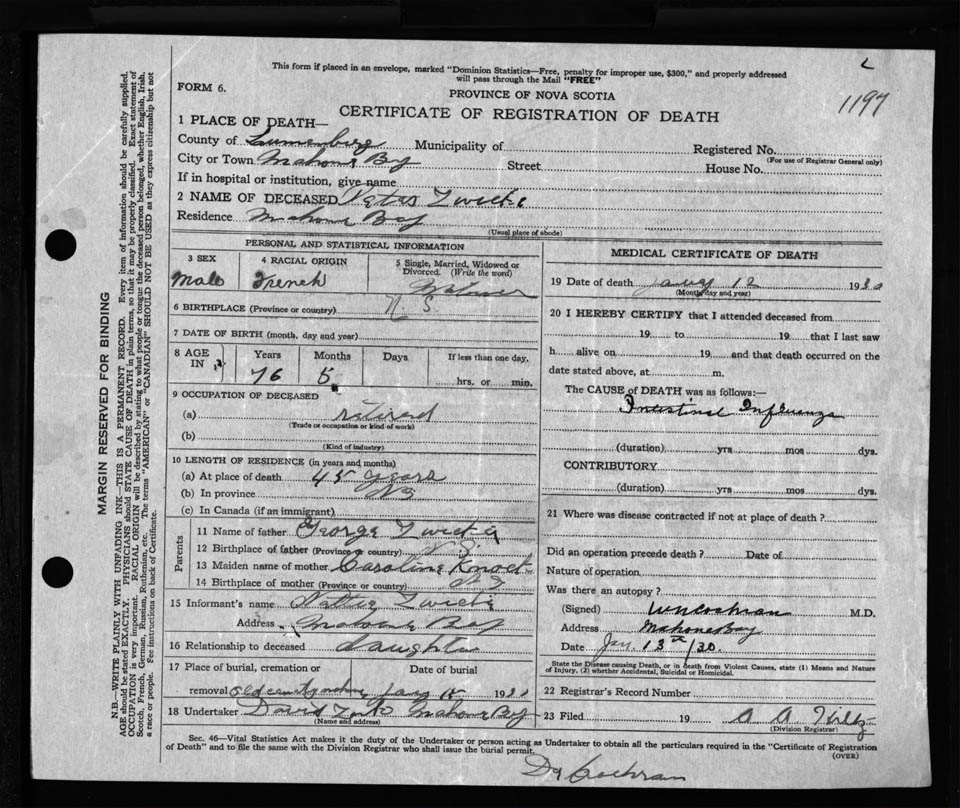 This form if placed in an envelope, marked "Dominion Statistics—Free, penalty for improper use, $300," and properly addressed
will pass through the Mail "FREE"
FORM 6.
PROVINCE OF NOVA SCOTIA
1197
CERTIFICATE OF REGISTRATION OF DEATH
1 PLACE OF DEATH—
County of Lunenburg Municipality of Registered No.
(For use of Registrar General only)
City or Town Mahone Bay Street House No.
If in hospital or institution, give name
2 NAME OF DECEASED Peter Zwicke
Residence Mahone Bay
(Usual place of abode)
PERSONAL AND STATISTICAL INFORMATION
3 SEX 4 RACIAL ORIGIN 5 Single, Married, Widowed or
Divorced. (Write the word)
Male French
6 BIRTHPLACE (Province or country) N S.
7 DATE OF BIRTH (month, day and year)
8 AGE IN Years Months Days If less than one day,
76 5 hrs, or min.
9 OCCUPATION OF DECEASED
(a) retired
(Trade or occupation or kind of work)
(b)
(Kind of industry)
10 LENGTH OF RESIDENCE (in years and months)
(a) At place of death 45 years
(b) In province NS
(c) In Canada (if an immigrant)
Parents
11 Name of father George Zwicke
12 Birthplace of father (Province or country) N S.
13 Maiden name of mother Caroline
14 Birthplace of mother (Province or country) N S
15 Informant's name Zwicke
Address Mahone Bay
16 Relationship to deceased daughter
17 Place of burial, cremation or Date of burial
removal old cemetery Jany 15 1930
18 Undertaker David Mahone Bay
(Name and address)
MEDICAL CERTIFICATE OF DEATH
19 Date of death Jany 12 1930
(Month, day and year)
20 I HEREBY CERTIFY that I attended deceased from
19 to 19 that I last saw
h alive on 19 and that death occurred on the
date stated above, at m.
The CAUSE of DEATH was as follows:
Intestinal Influenza
(duration) yrs mos dys.
CONTRIBUTORY
(duration) yrs mos dys.
21 Where was disease contracted if not at place of death?
Did an operation precede death? Date of
Nature of operation
Was there an autopsy?
(Signed) W N Cochran M.D.
Address Mahone Bay
Date Jan. 13th/30.
State the Disease causing Death, or in death from Violent Causes, state (1) Means and Nature
of Injury, (2) whether Accidental, Suicidal or Homicidal.
22 Registrar's Record Number
23 Filed 19 A A
(Division Registrar)
Sec. 46—Vital Statistics Act makes it the duty of the Undertaker or person acting as Undertaker to obtain all the particulars required in the "Certificate of Registration
of Death" and to file the same with the Division Registrar who shall issue the burial permit.
(OVER)
Dr Cochran
MARGIN RESERVED FOR BINDING
N.B.—WRITE PLAINLY WITH UNFADING INK—THIS IS A PERMANENT RECORD. Every item of information should be carefully supplied.
AGE should be stated EXACTLY. PHYSICIANS should STATE CAUSE OF DEATH in plain terms, so that it may be properly classified. Exact statement of
OCCUPATION is very important. RACIAL ORIGIN will be described by stating to what people or tongue the deceased person belonged, whether English, Irish,
Scotch, French, German, Russian, Ruthenian, etc. The terms "AMERICAN" or "CANADIAN" SHOULD NOT BE USED as they express citizenship but not
a race or people. See instructions on back of Certificate.